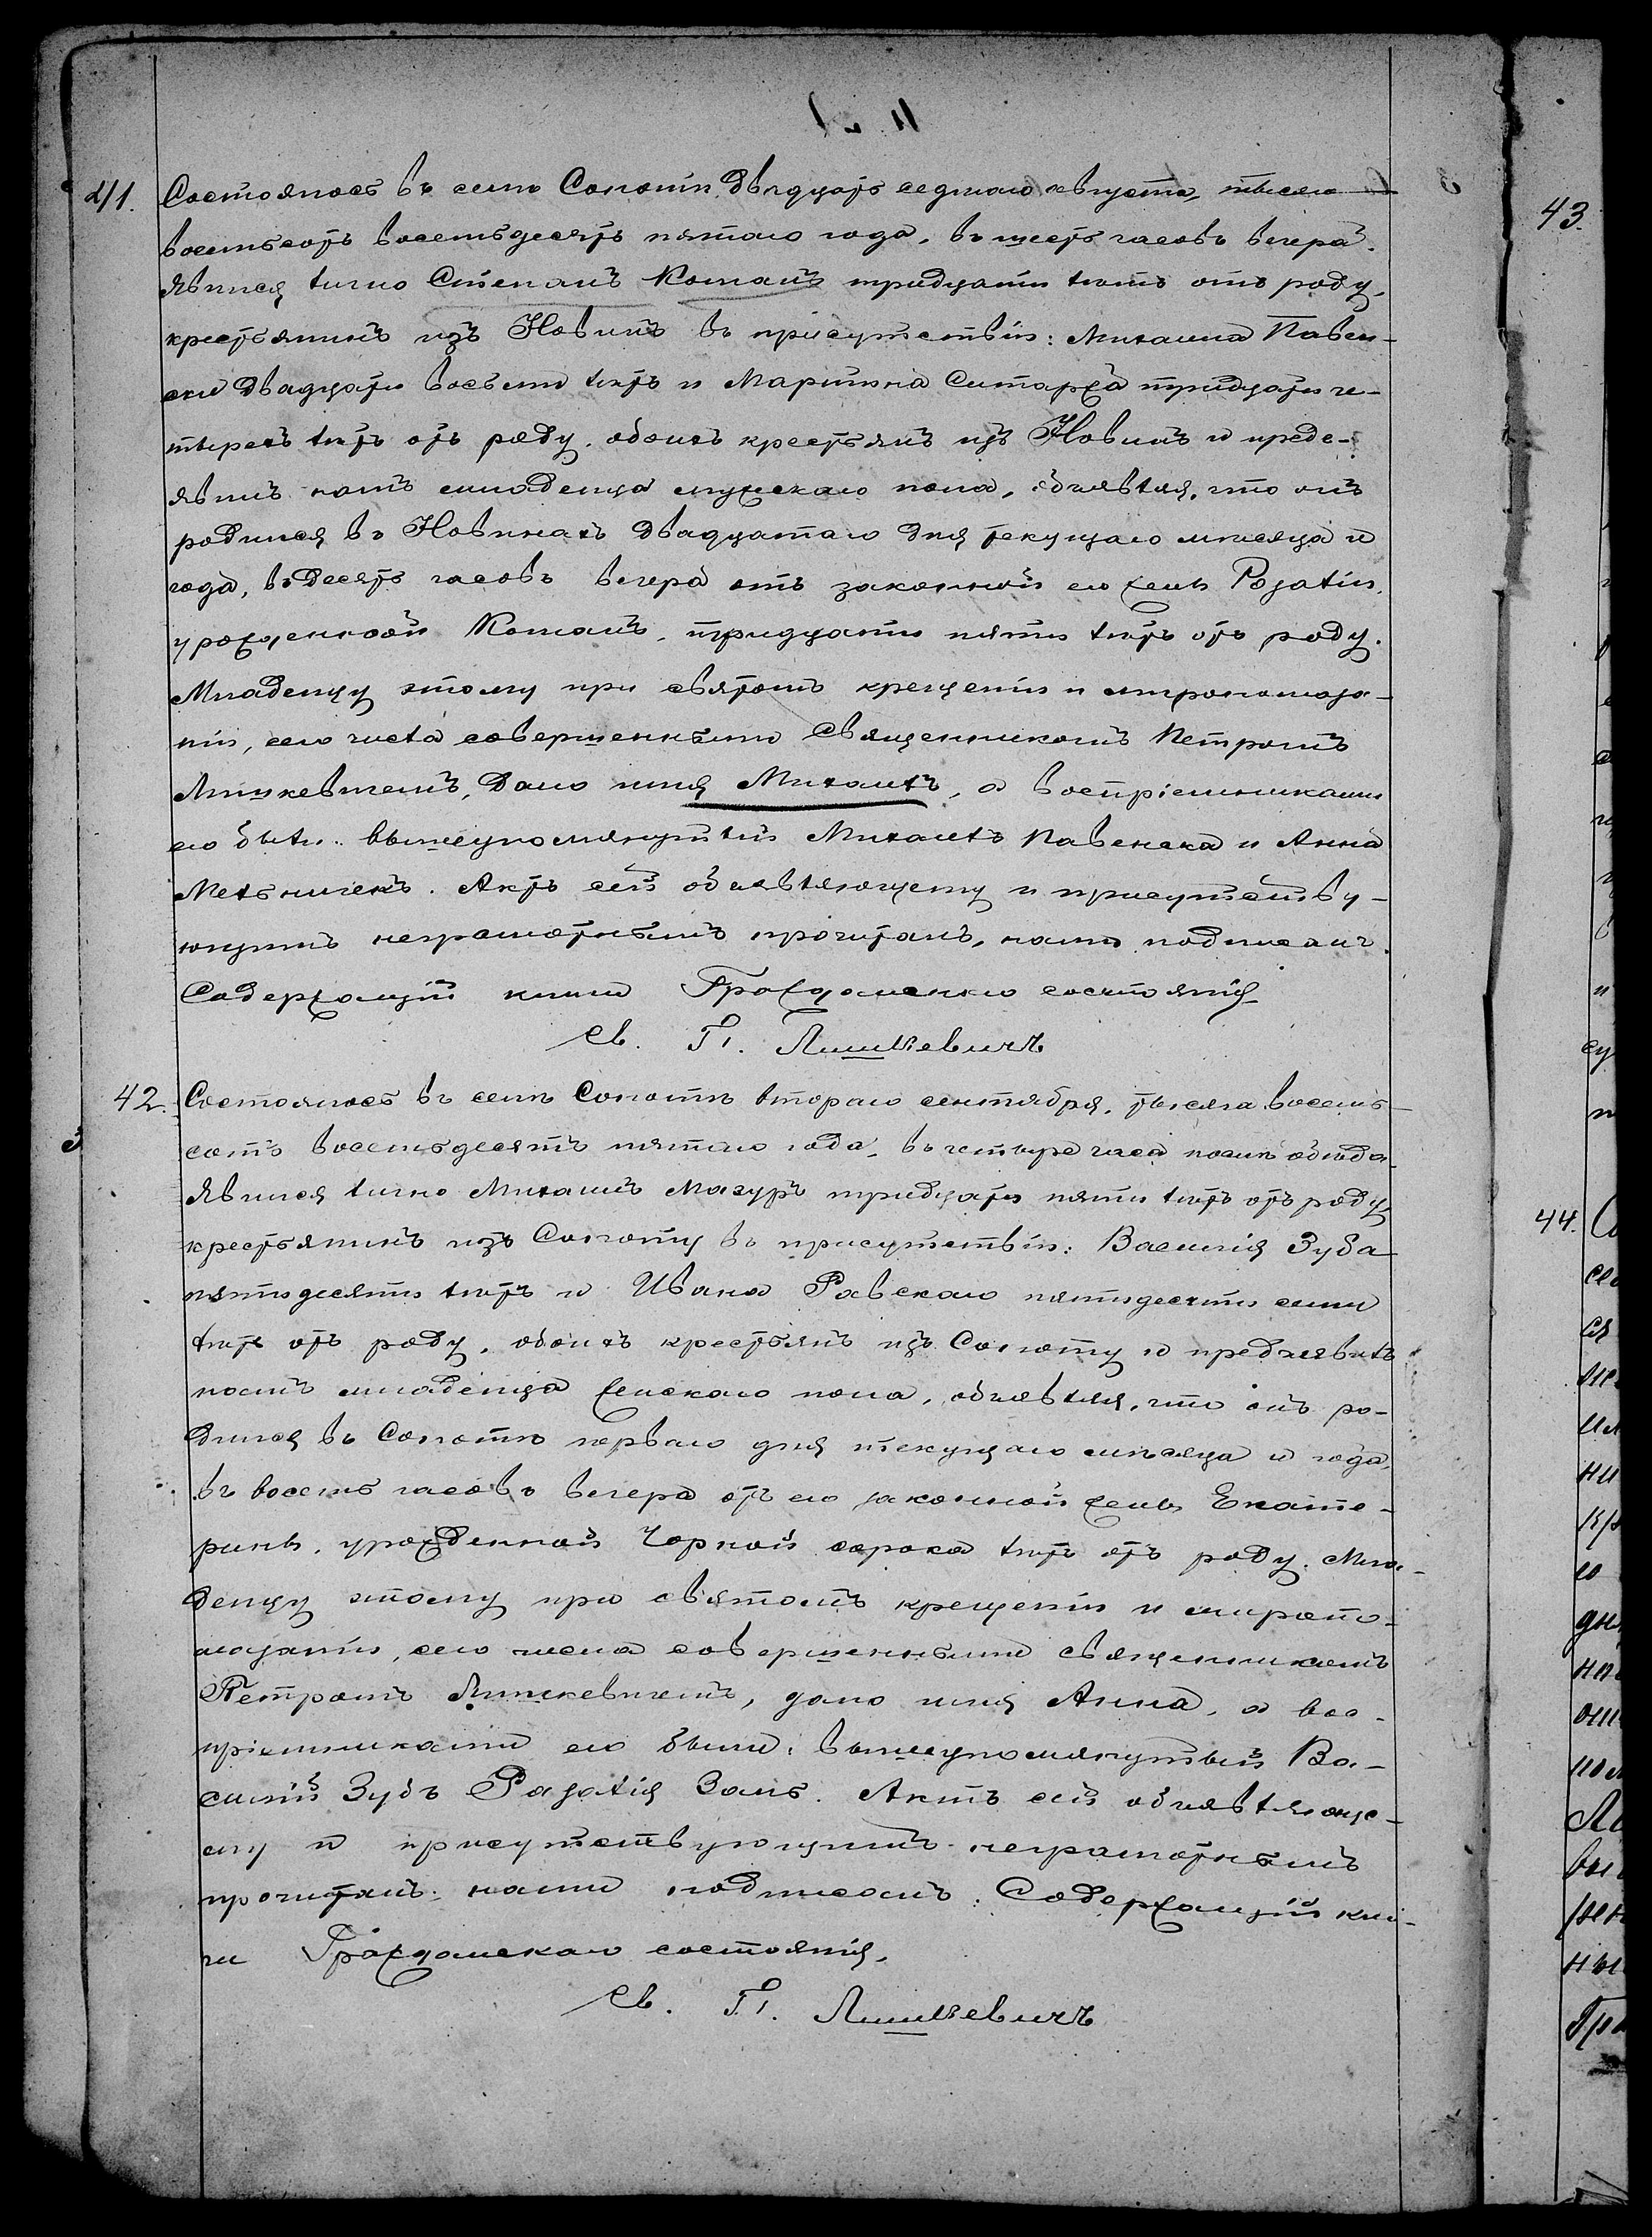 41. Состоялось въ селѣ Сопотѣ двадцать седьмаго августа, тысяча
восемьсотъ восемьдесятъ пятаго года, въ шесть часовъ вечера.
Явился лично Степанъ Команъ тридцати лѣтъ отъ роду,
крестьянинъ изъ Новинъ въ присутствіи: Михаила Павен-
ски двадцати восьми лѣтъ и Мартина Ситаржа тридцати че-
тырехъ лѣтъ отъ роду, обоихъ крестьянъ изъ Новинъ и предъ-
явилъ намъ младенца мужскаго пола, объявляя, что онъ
родился въ Новинахъ двадцатаго дня текущаго мѣсяца и
года, въ десять часовъ вечера отъ законной его жены Розаліи,
урожденной Команъ, тридцати пяти лѣтъ отъ роду.
Младенцу этому при святомъ крещеніи и миропомаза-
ніи, сего числа совершенными Священникомъ Петромъ
Лишкевичемъ, дано имя Михаилъ, а воспріемниками
его были: вышеупомянутый Михаилъ Павенска и Анна
Мельничекъ. Актъ сей объявляющему и присутству-
ющимъ неграмотнымъ прочитанъ, нами подписанъ.
Содержащій книги Гражданскаго состоянія
Св. П. Лишкевичъ
42. Состоялось въ селѣ Сопотѣ втораго сентября, тысяча восемь-
сотъ восемьдесятъ пятаго года, въ четыре часа послѣ обѣда.
Явился лично Михаилъ Мазуръ тридцати пяти лѣтъ отъ роду
крестьянинъ изъ Сопоту въ присутствіи: Василія Зуба
пятидесяти лѣтъ и Ивана Равскаго пятидесяти семи
лѣтъ отъ роду, обоихъ крестьянъ изъ Сопоту и предъявилъ
намъ младенца женскаго пола, объявляя, что онъ ро-
дился въ Сопотѣ перваго дня текущаго мѣсяца и года,
въ восемь часовъ вечера отъ его законной жены Екате-
рины, урожденной Чорной сорока лѣтъ отъ роду. Мла-
денцу этому при святомъ крещеніи и миропо-
мазаніи, сего числа совершенными священникомъ
Петромъ Лишкевичемъ, дано имя Анна, а вос-
пріемниками его были: вышеупомянутый Ва-
силій Зубъ Розалія Заль. Актъ сей объявляюще-
му и присутствующимъ неграмотнымъ
прочитанъ, нами подписанъ. Содержащій кни-
ги Гражданскаго состоянія,
Св. П. Лишкевичъ
43.
44.